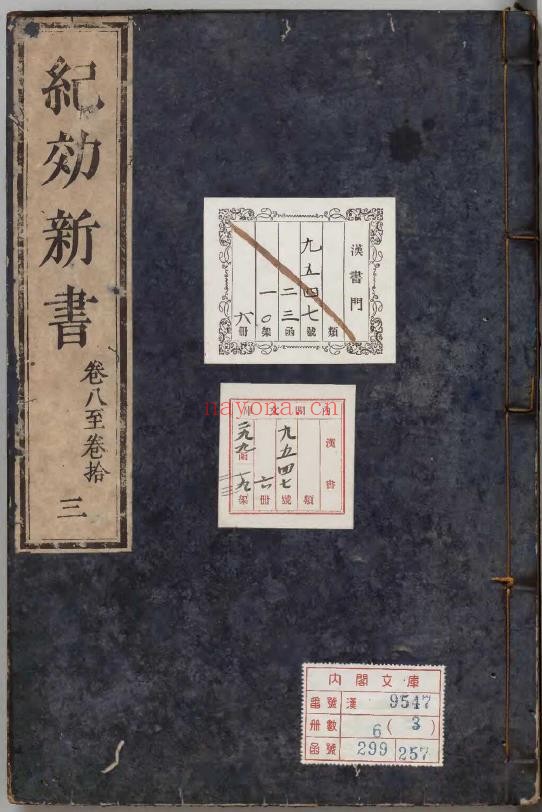 紀効新書
卷八至卷拾
三
漢書門
類
九五四七號
二三函
一〇架
六冊
nayona.cn
內閣文庫
漢書
類
九五四七號
六冊
二九九函
一九架
內閣文庫
番號 漢 9547
冊數 6(3)
函號 299 257